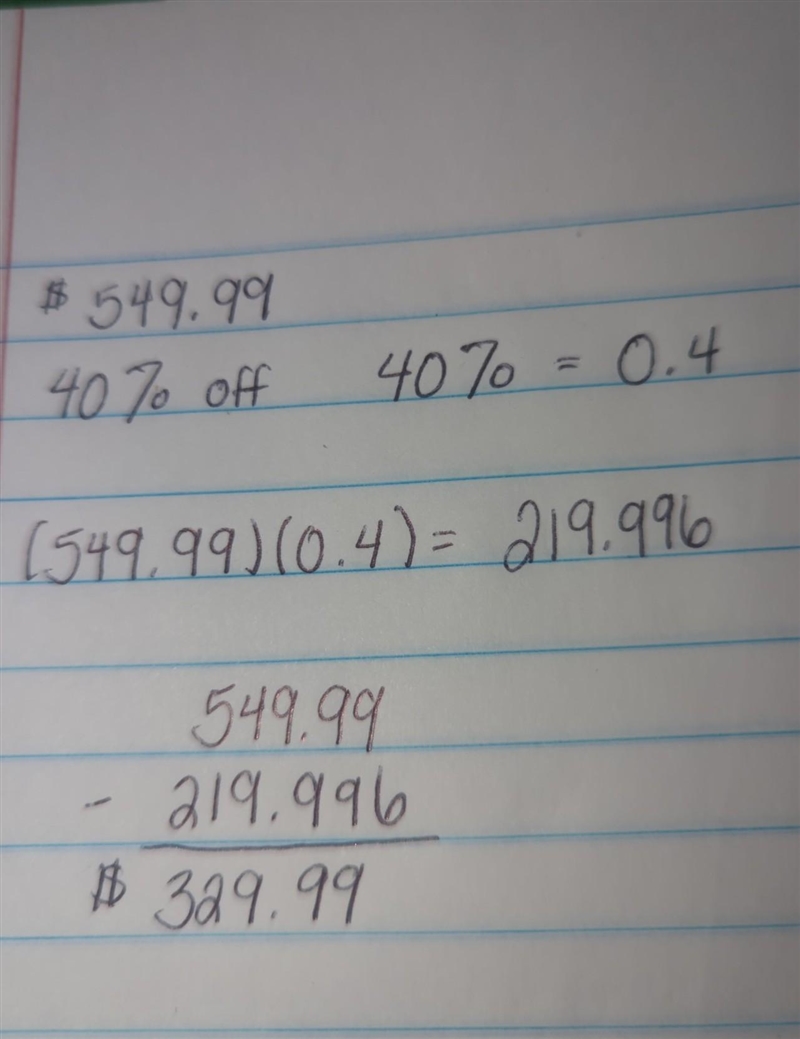 $ 549.99
40% off 40% = 0.4
(549.99)(0.4) = 219.996
549.99
- 219.996
$ 329.99